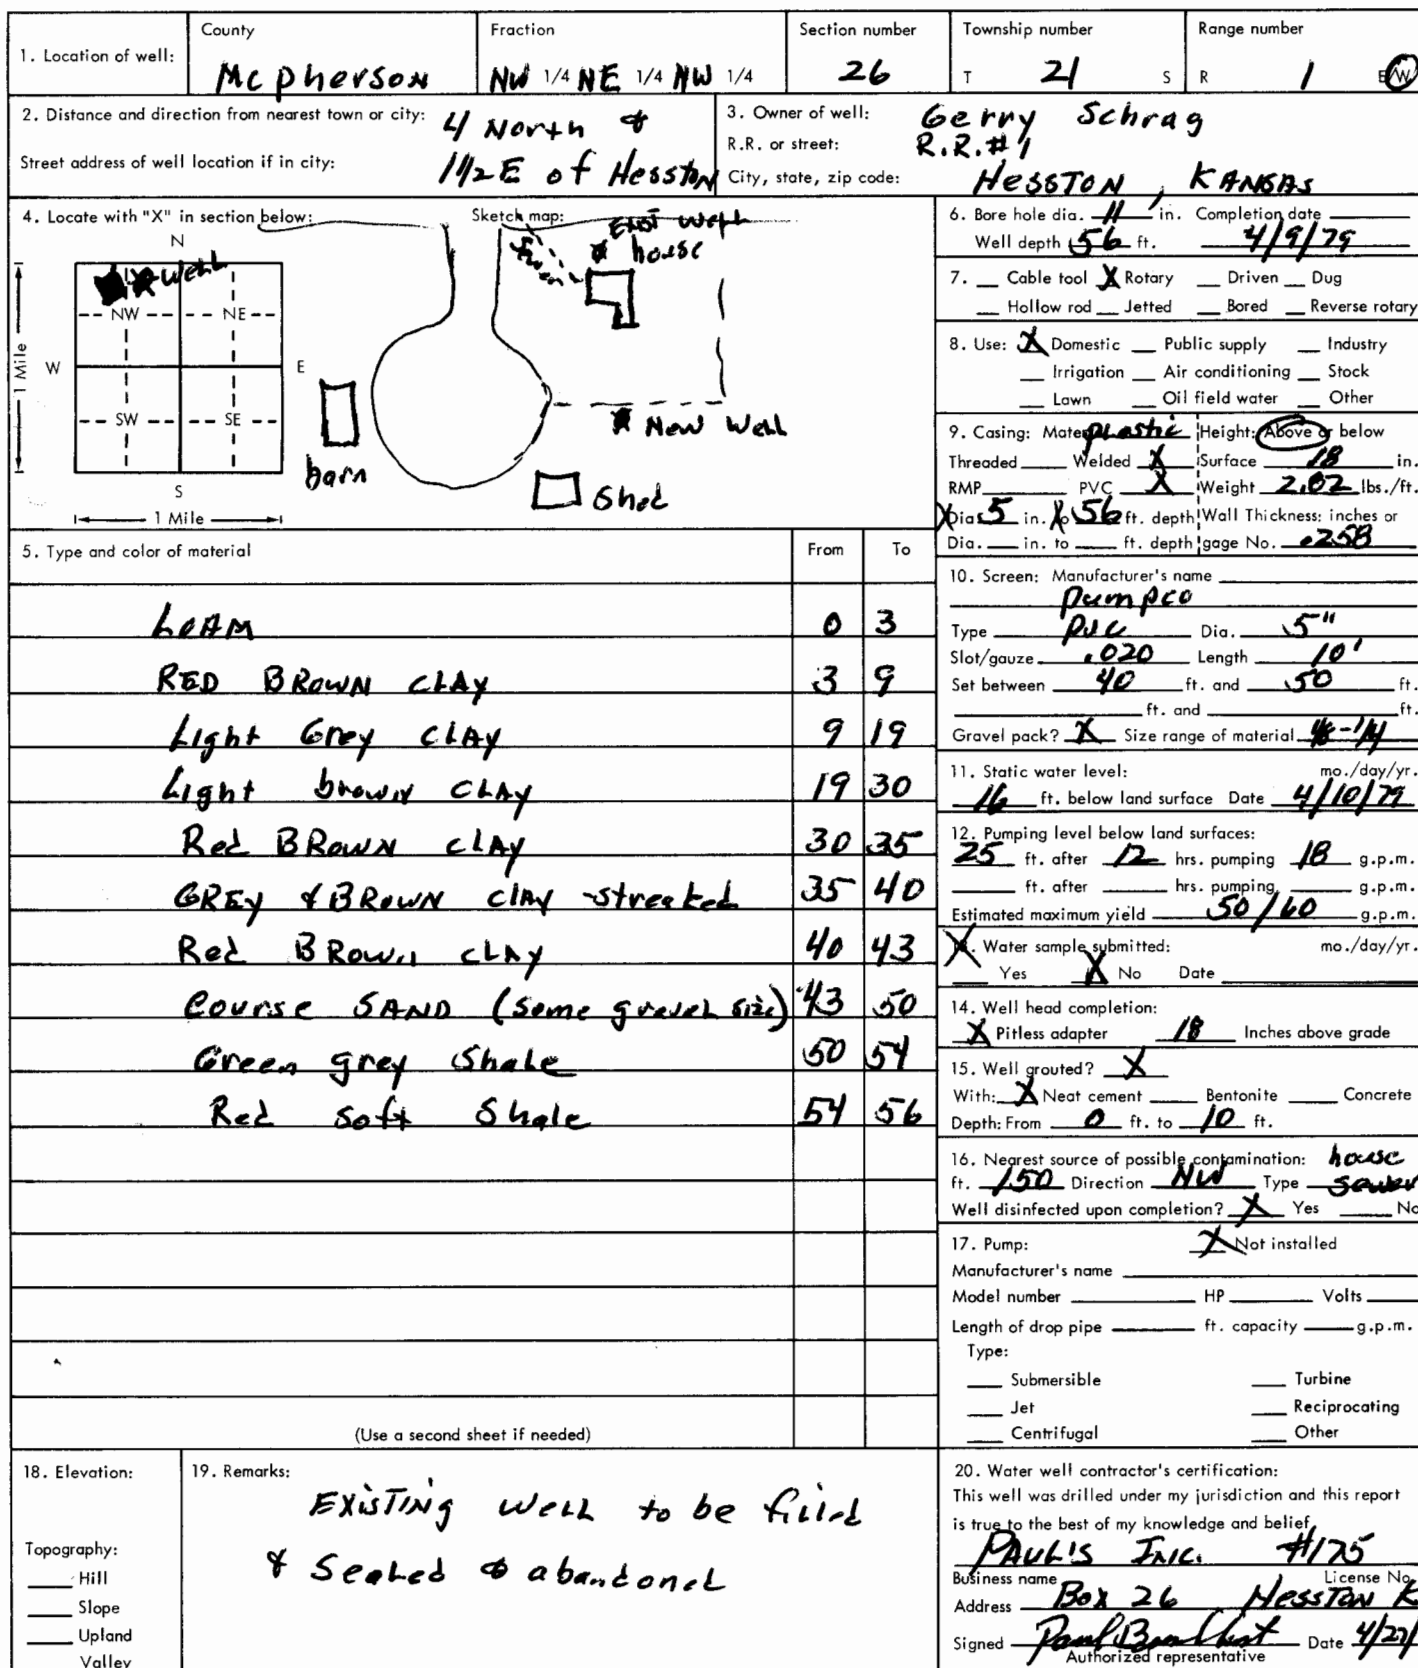 County Fraction Section number Township number Range number
1. Location of well: McPherson NW 1/4 NE 1/4 NW 1/4 26 T 21 S R 1 E/W
2. Distance and direction from nearest town or city: 4 North &
Street address of well location if in city: 1 1/2 E of Hesston
3. Owner of well: Gerry Schrag
R.R. or street: R.R.#1
City, state, zip code: HESSTON, KANSAS
4. Locate with "X" in section below: Sketch map:
N
well
NW NE
W E
SW SE
S
1 Mile
1 Mile
Exist well
house
sewer
New Well
barn
Shed
5. Type and color of material From To
LOAM 0 3
RED BROWN CLAY 3 9
Light Grey CLAY 9 19
Light brown CLAY 19 30
Red BROWN CLAY 30 35
GREY & BROWN CLAY -streaked 35 40
Red BROWN CLAY 40 43
Course SAND (some gravel size) 43 50
Green grey Shale 50 54
Red soft Shale 54 56
(Use a second sheet if needed)
6. Bore hole dia. 11 in. Completion date
Well depth 56 ft. 4/9/79
7. Cable tool X Rotary Driven Dug
Hollow rod Jetted Bored Reverse rotary
8. Use: X Domestic Public supply Industry
Irrigation Air conditioning Stock
Lawn Oil field water Other
9. Casing: Material plastic Height: Above or below
Threaded Welded X Surface 18 in.
RMP PVC X Weight 2.82 lbs./ft.
Dia. 5 in. to 56 ft. depth Wall Thickness: inches or
Dia. in. to ft. depth gage No. .258
10. Screen: Manufacturer's name
Pumpco
Type PVC Dia. 5"
Slot/gauze .020 Length 10'
Set between 40 ft. and 50 ft.
ft. and ft.
Gravel pack? X Size range of material 1/8-1/4
11. Static water level: mo./day/yr.
16 ft. below land surface Date 4/10/79
12. Pumping level below land surfaces:
25 ft. after 12 hrs. pumping 18 g.p.m.
ft. after hrs. pumping g.p.m.
Estimated maximum yield 50/60 g.p.m.
X. Water sample submitted: mo./day/yr.
Yes X No Date
14. Well head completion:
X Pitless adapter 18 Inches above grade
15. Well grouted? X
With: X Neat cement Bentonite Concrete
Depth: From 0 ft. to 10 ft.
16. Nearest source of possible contamination: house
ft. 150 Direction NW Type sewer
Well disinfected upon completion? X Yes No
17. Pump: X Not installed
Manufacturer's name
Model number HP Volts
Length of drop pipe ft. capacity g.p.m.
Type:
Submersible Turbine
Jet Reciprocating
Centrifugal Other
18. Elevation:
Topography:
Hill
Slope
Upland
Valley
19. Remarks:
EXISTING well to be filled
& Sealed & abandoned
20. Water well contractor's certification:
This well was drilled under my jurisdiction and this report
is true to the best of my knowledge and belief.
PAUL'S INC. #175
Business name License No.
Address Box 26 Hesston K
Signed Date 4/27/
Authorized representative